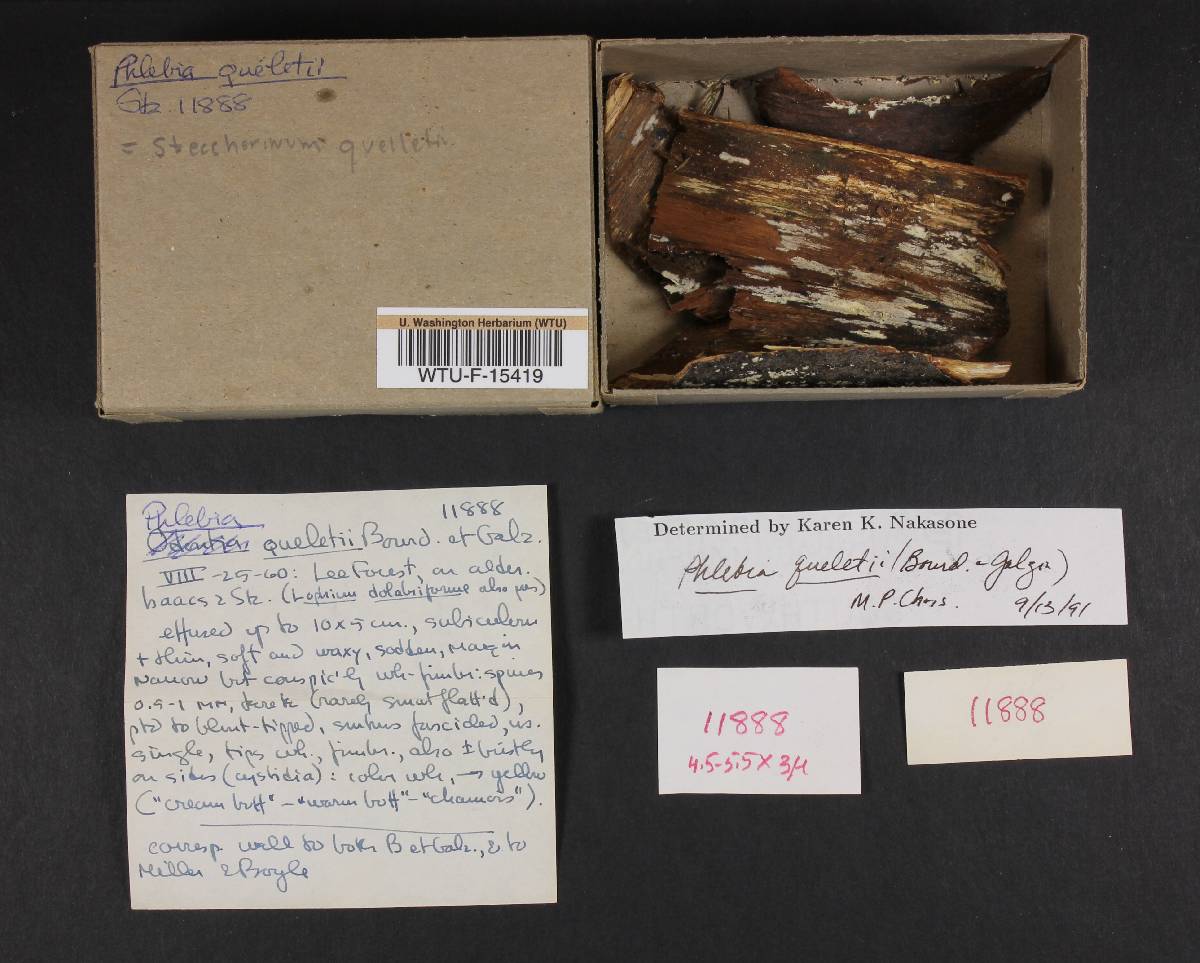 Phlebia quéletii
Stz 11888
= Steccherinum quelletii
U. Washington Herbarium (WTU)
WTU-F-15419
Phlebia 11888
queletii Bourd. et Galz.
VIII-25-60: Lee Forest, on alder.
Isaacs & Stz. (Lophium dolabriforme also pres)
effused up to 10x5 cm., subiculum
± thin, soft and waxy, sodden, margin
narrow but conspic'ly wh-fimbr: spines
0.5-1 mm, terete (rarely smwt flatt'd),
ptd to blunt-tipped, smtms fascicled, us.
single, tips wh., fimbr., also ± bristly
on sides (cystidia): color wh., → yellow
("cream buff" - "warm buff" - "chamois").
corresp. well to both B et Galz., & to
Miller & Boyle
Determined by Karen K. Nakasone
Phlebia queletii (Bourd. & Galzin)
M.P. Chris. 9/13/91
11888
4.5-5.5 x 3μ
11888